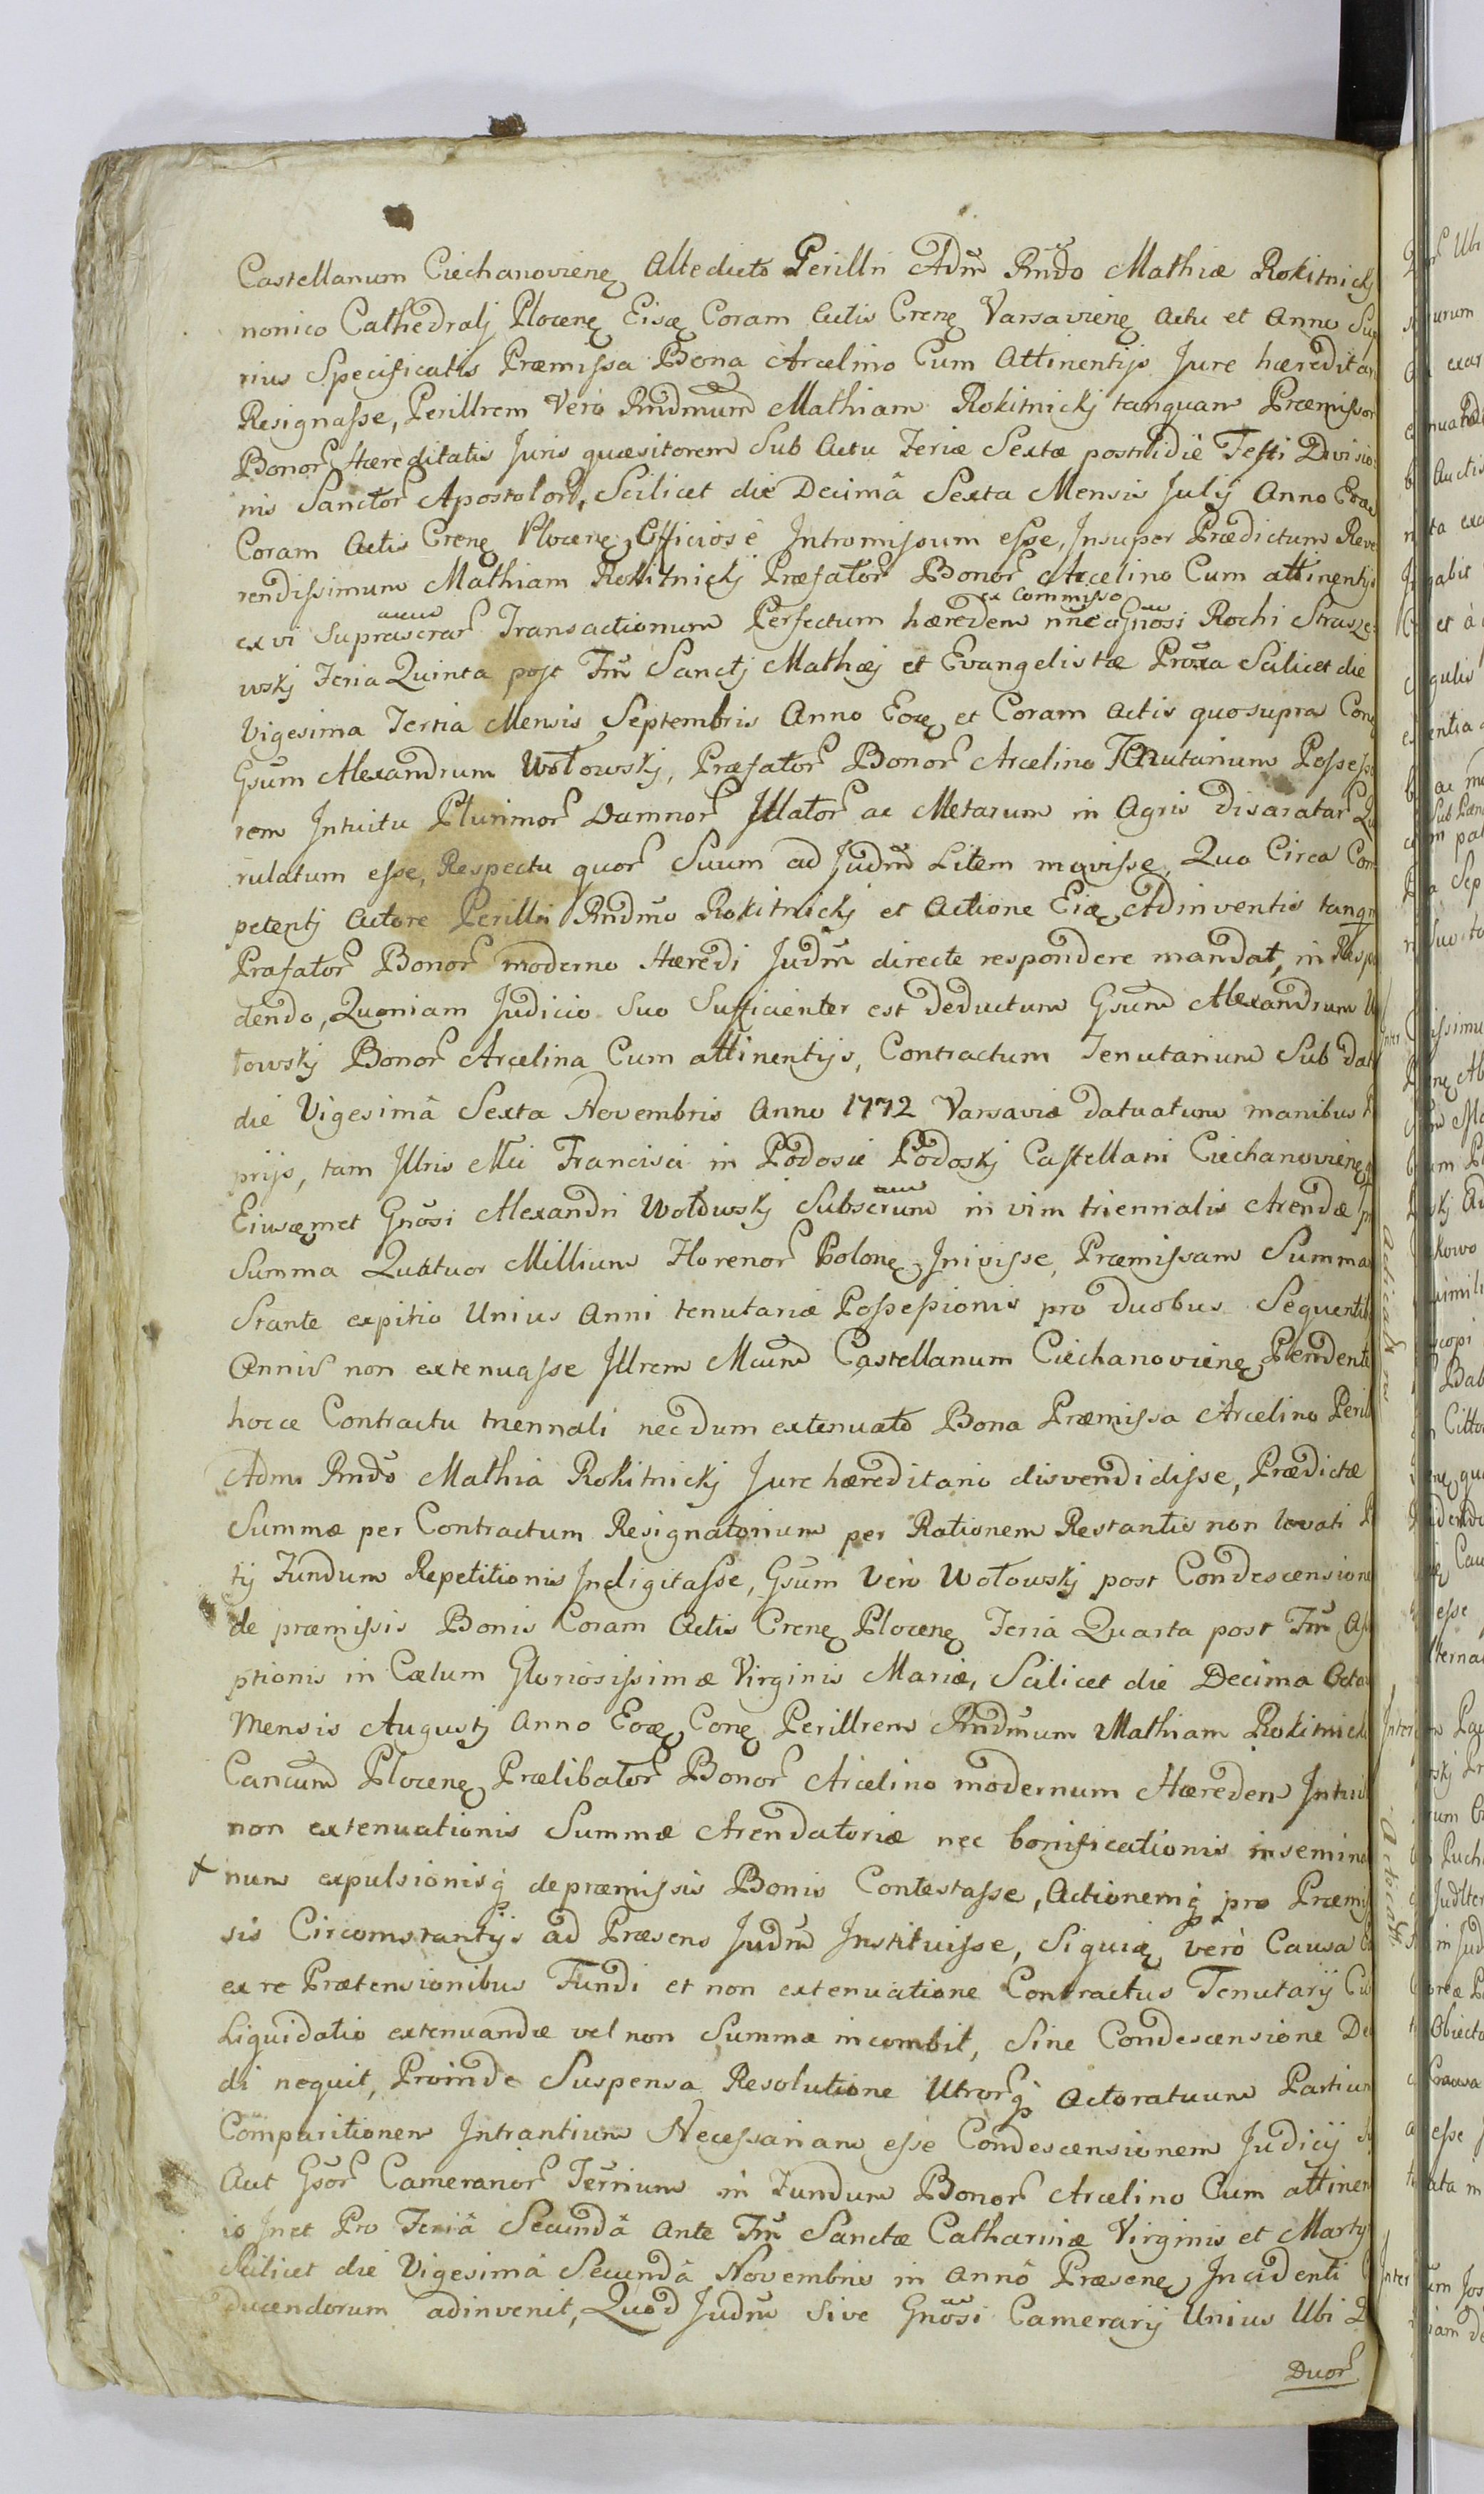 Castellanum Ciechanovieñ Altedicto Perillri Adm̃ Rndo Mathiæ Rokitnickj
nonico Cathedralj Plocenę Eisdę Coram Actis Crenę Varsavienę Actu et Anno Sup
rius Specificatis Præmissa Bona Arcelino Cum Attinentijs Jure hæreditar
Resignasse, Perillrem Verò Rndmum Mathiam Rokitnickj tanquam Præmissor
Bonor Hæreditatis Juris quæsitorem Sub Actu Feriæ Sextæ postridiè Festi Divisio
nis Sanctor Apostolor, Scilicet die Decimâ Sexta Mensis Julij Anno Eodę
Coram Actis Crenę Plocenę Officiosè Intromissum esse, Insuper Prædictum Reve
rendissimum Mathiam Rokitnickj Præfator Bonor Arcelino Cum attinentijs
ex vi Suprascrar Transactionum Perfectum hæredem nñe ex Commisso Gnosi Rochi Strusze
wskj Feria Quinta post Fm̃ Sanctj Mathæj et Evangelistæ Proxa Scilicet die
Vigesima Tertia Mensis Septembris Anno Eodę et Coram Actis quo supra Conę
Gsum Alexandrum Wołowskj, Præfator Bonor Arcelino Tenutarium Possesso
rem Intuitu Plurimor Damnor Illator ac Metarum in Agris disaratar Qu
rulatum esse, Respectu quor Suum ad Judm̃ Litem movisse, Quo Circa Com
petentj Actore Perillri Rndmo Rokitnickj et Actione Eię Adinventis tanqm
Præfator Bonor moderno Hæredi Judm̃ directe respondere mandat, in Respo
dendo, Quoniam Judicio Suo Sufficienter est deductum Gsum Alexandrum W
łowskj Bonor Arcelina Cum attinentijs, Contractum Tenutarium Sub dat
die Vigesimâ Sexta Novembris Anno 1772 Varsaviæ datuatum manibus P
prijs, tam Illris Mci Francisci in Podosie Podoskj Castellani Ciechanovienę q
Eiusdęmet Gnosi Alexandri Wołowskj Subscrum in vim triennalis Arendæ in
Summa Quatuor Millium Florenor Polonę Inivisse, Præmissam Summa
Stante expitio Unius Anni tenutariæ Possessionis pro duobus Sequentib
Annis non extenuasse Illrem Mcum Castellanum Ciechanovienę Pendente
hocce Contractu triennali necdum extenuato Bona Præmissa Arcelino Perill
Adm Rndo Mathiæ Rokitnickj Jure hæreditario disvendidisse, Prædictæ
Summæ per Contractum Resignatorium per Rationem Restantis non levati P
tij Fundum Repetitionis Indigitasse, Gsum Verò Wołowskj post Condescensione
de præmissis Bonis Coram Actis Crenę Plocenę Feria Quarta post Fm̃ Assu
ptionis in Cælum Gloriosissimæ Virginis Mariæ, Scilicet die Decima Octa
Mensis Augustj Anno Eodę Conę Perillrem Rndmum Mathiam Rokitnick
Cancum Plocenę Prælibator Bonor Arcelino modernum Hæredem Intui
non extenuationis Summæ Arendatoriæ nec bonificationis insemina
+ num expulsionisq̃ de præmissis Bonis Contestasse, Actionemq̃ pro Præmis
sis Circomstantijs ad Præsens Judm̃ Instituisse, Siquidę verò Causa
ex re Prætensionibus Fundi et non extenuatione Contractus Tenutarij Cu
Liquidatio extenuandæ vel non Summæ incombit, Sine Condescensione De
di nequit, Proinde Suspensa Resolutione Utrorq̃ Actoratuum Partium
Comparitionem Intrantium Necessariam esse Condescensionem Judicij S
Aut Gsor Camerarior Ternum in Fundum Bonor Arcelino Cum attinen
is Inet Pro Feriâ Secundâ Ante Fm̃ Sanctæ Catharinæ Virginis et Marty
Scilicet die Vigesimâ Secundâ Novembris in Annô Præsenę Incidenti
ducendorum adinvenit, Quod Judm̃ Sive Gnosi Camerarij Unius Ubi
Duor